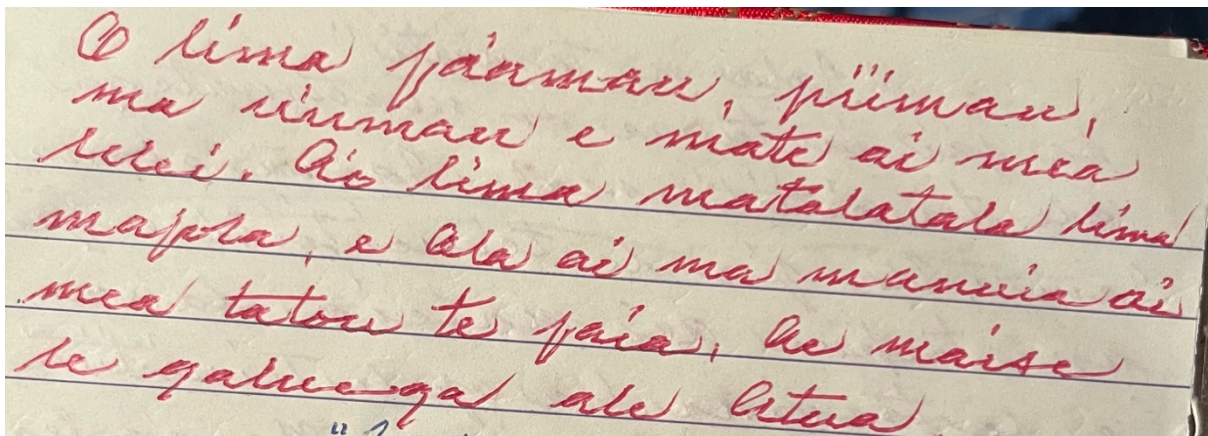 O lima faamau, piimau,
ma uumau e mate ai mea
lelei. Ao lima matalatala lima
mafola, e Ola ai ma manuia ai
mea tatou te faia, ae maise
le galuega ale Atua